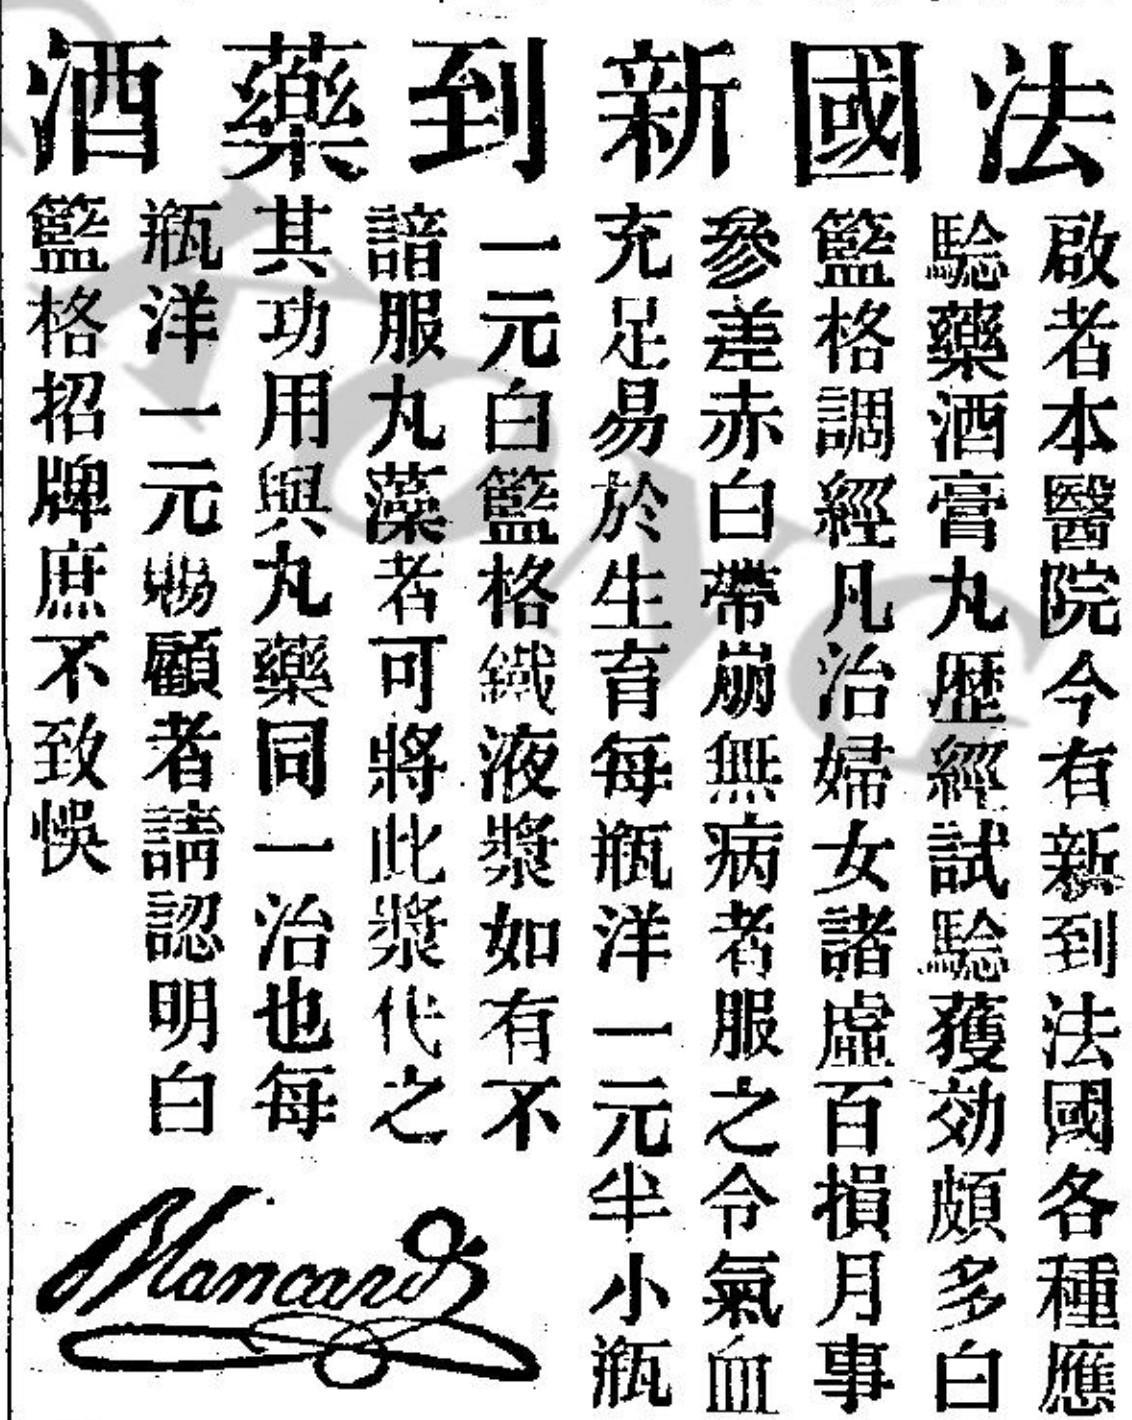 法國新到藥酒
啟者本醫院今有新到法國各種應
驗藥酒膏丸歷經試驗獲効頗多白
籃格調經凡治婦女諸虛百損月事
參差赤白帶崩無病者服之令氣血
充足易於生育每瓶洋一元半小瓶
一元白籃格鐵液漿如有不
諳服丸藻者可將此漿代之
其功用與丸藥同一治也每
瓶洋一元賜顧者請認明白
籃格招牌庶不致悞
Blancard
KONG